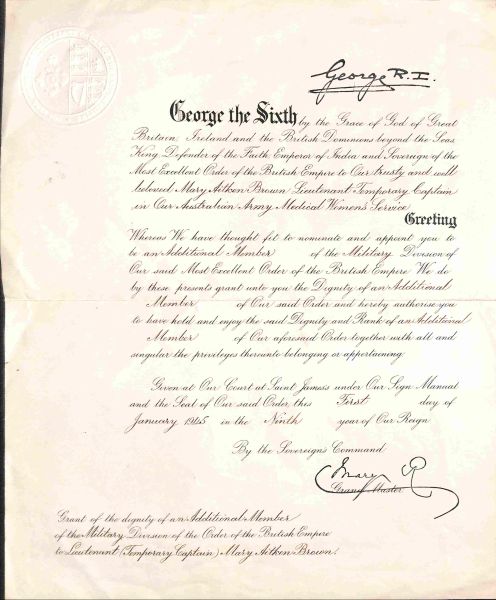 George R.I.
George the Sixth by the Grace of God of Great
Britain, Ireland and the British Dominions beyond the Seas
King, Defender of the Faith, Emperor of India and Sovereign of the
Most Excellent Order of the British Empire to Our trusty and well
beloved Mary Aitken Brown Lieutenant (Temporary Captain)
in Our Australian Army Medical Women's Service
Greeting
Whereas We have thought fit to nominate and appoint you to
be an Additional Member of the Military Division of
Our said Most Excellent Order of the British Empire We do
by these presents grant unto you the Dignity of an Additional
Member of Our said Order and hereby authorise you
to have hold and enjoy the said Dignity and Rank of an Additional
Member of Our aforesaid Order together with all and
singular the privileges thereunto belonging or appertaining.
Given at Our Court at Saint James's under Our Sign Manual
and the Seal of Our said Order this First day of
January 1945 in the Ninth year of Our Reign.
By the Sovereign's Command.
Mary R
Grand Master
Grant of the dignity of an Additional Member
of the Military Division of the Order of the British Empire
to Lieutenant (Temporary Captain) Mary Aitken Brown.